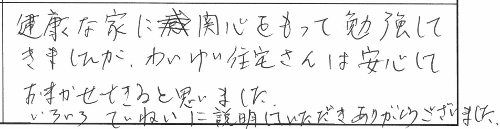 健康な家に関心をもって勉強して
きましたが、わいゆい住宅さんは安心して
おまかせできると思いました。
いろいろていねいに説明していただきありがとうございました。